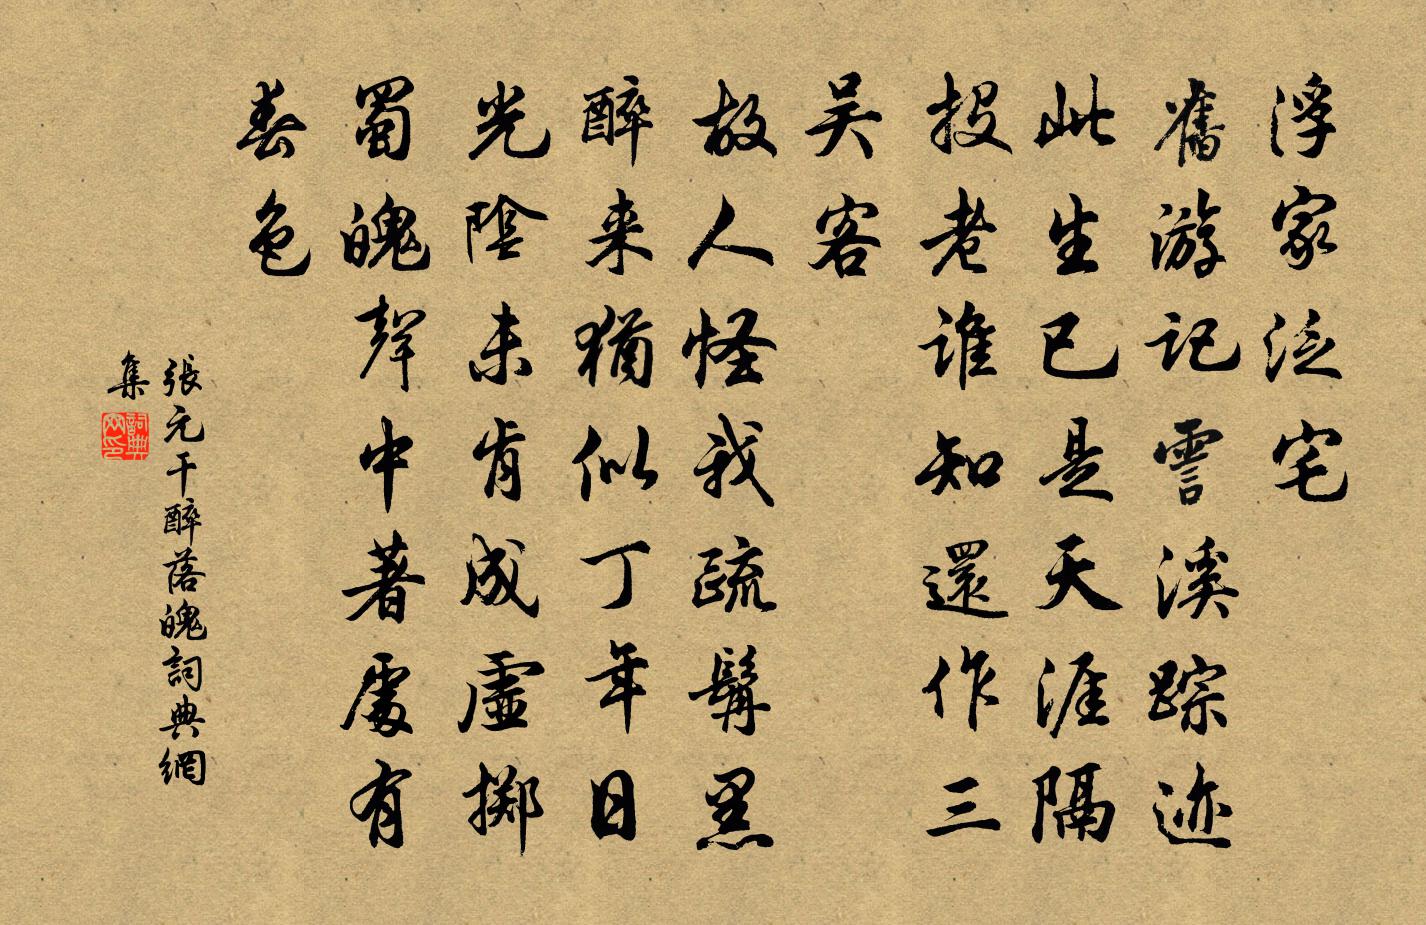 浮家泛宅
舊游記雪溪踪迹
此生已是天涯隔
投老誰知還作三
吴客
故人怪我疏髯黑
醉来猶似丁年日
光陰未肯成虚擲
蜀魄聲中著處有
春色
張元干醉落魄詞典網
集
詞典
网印